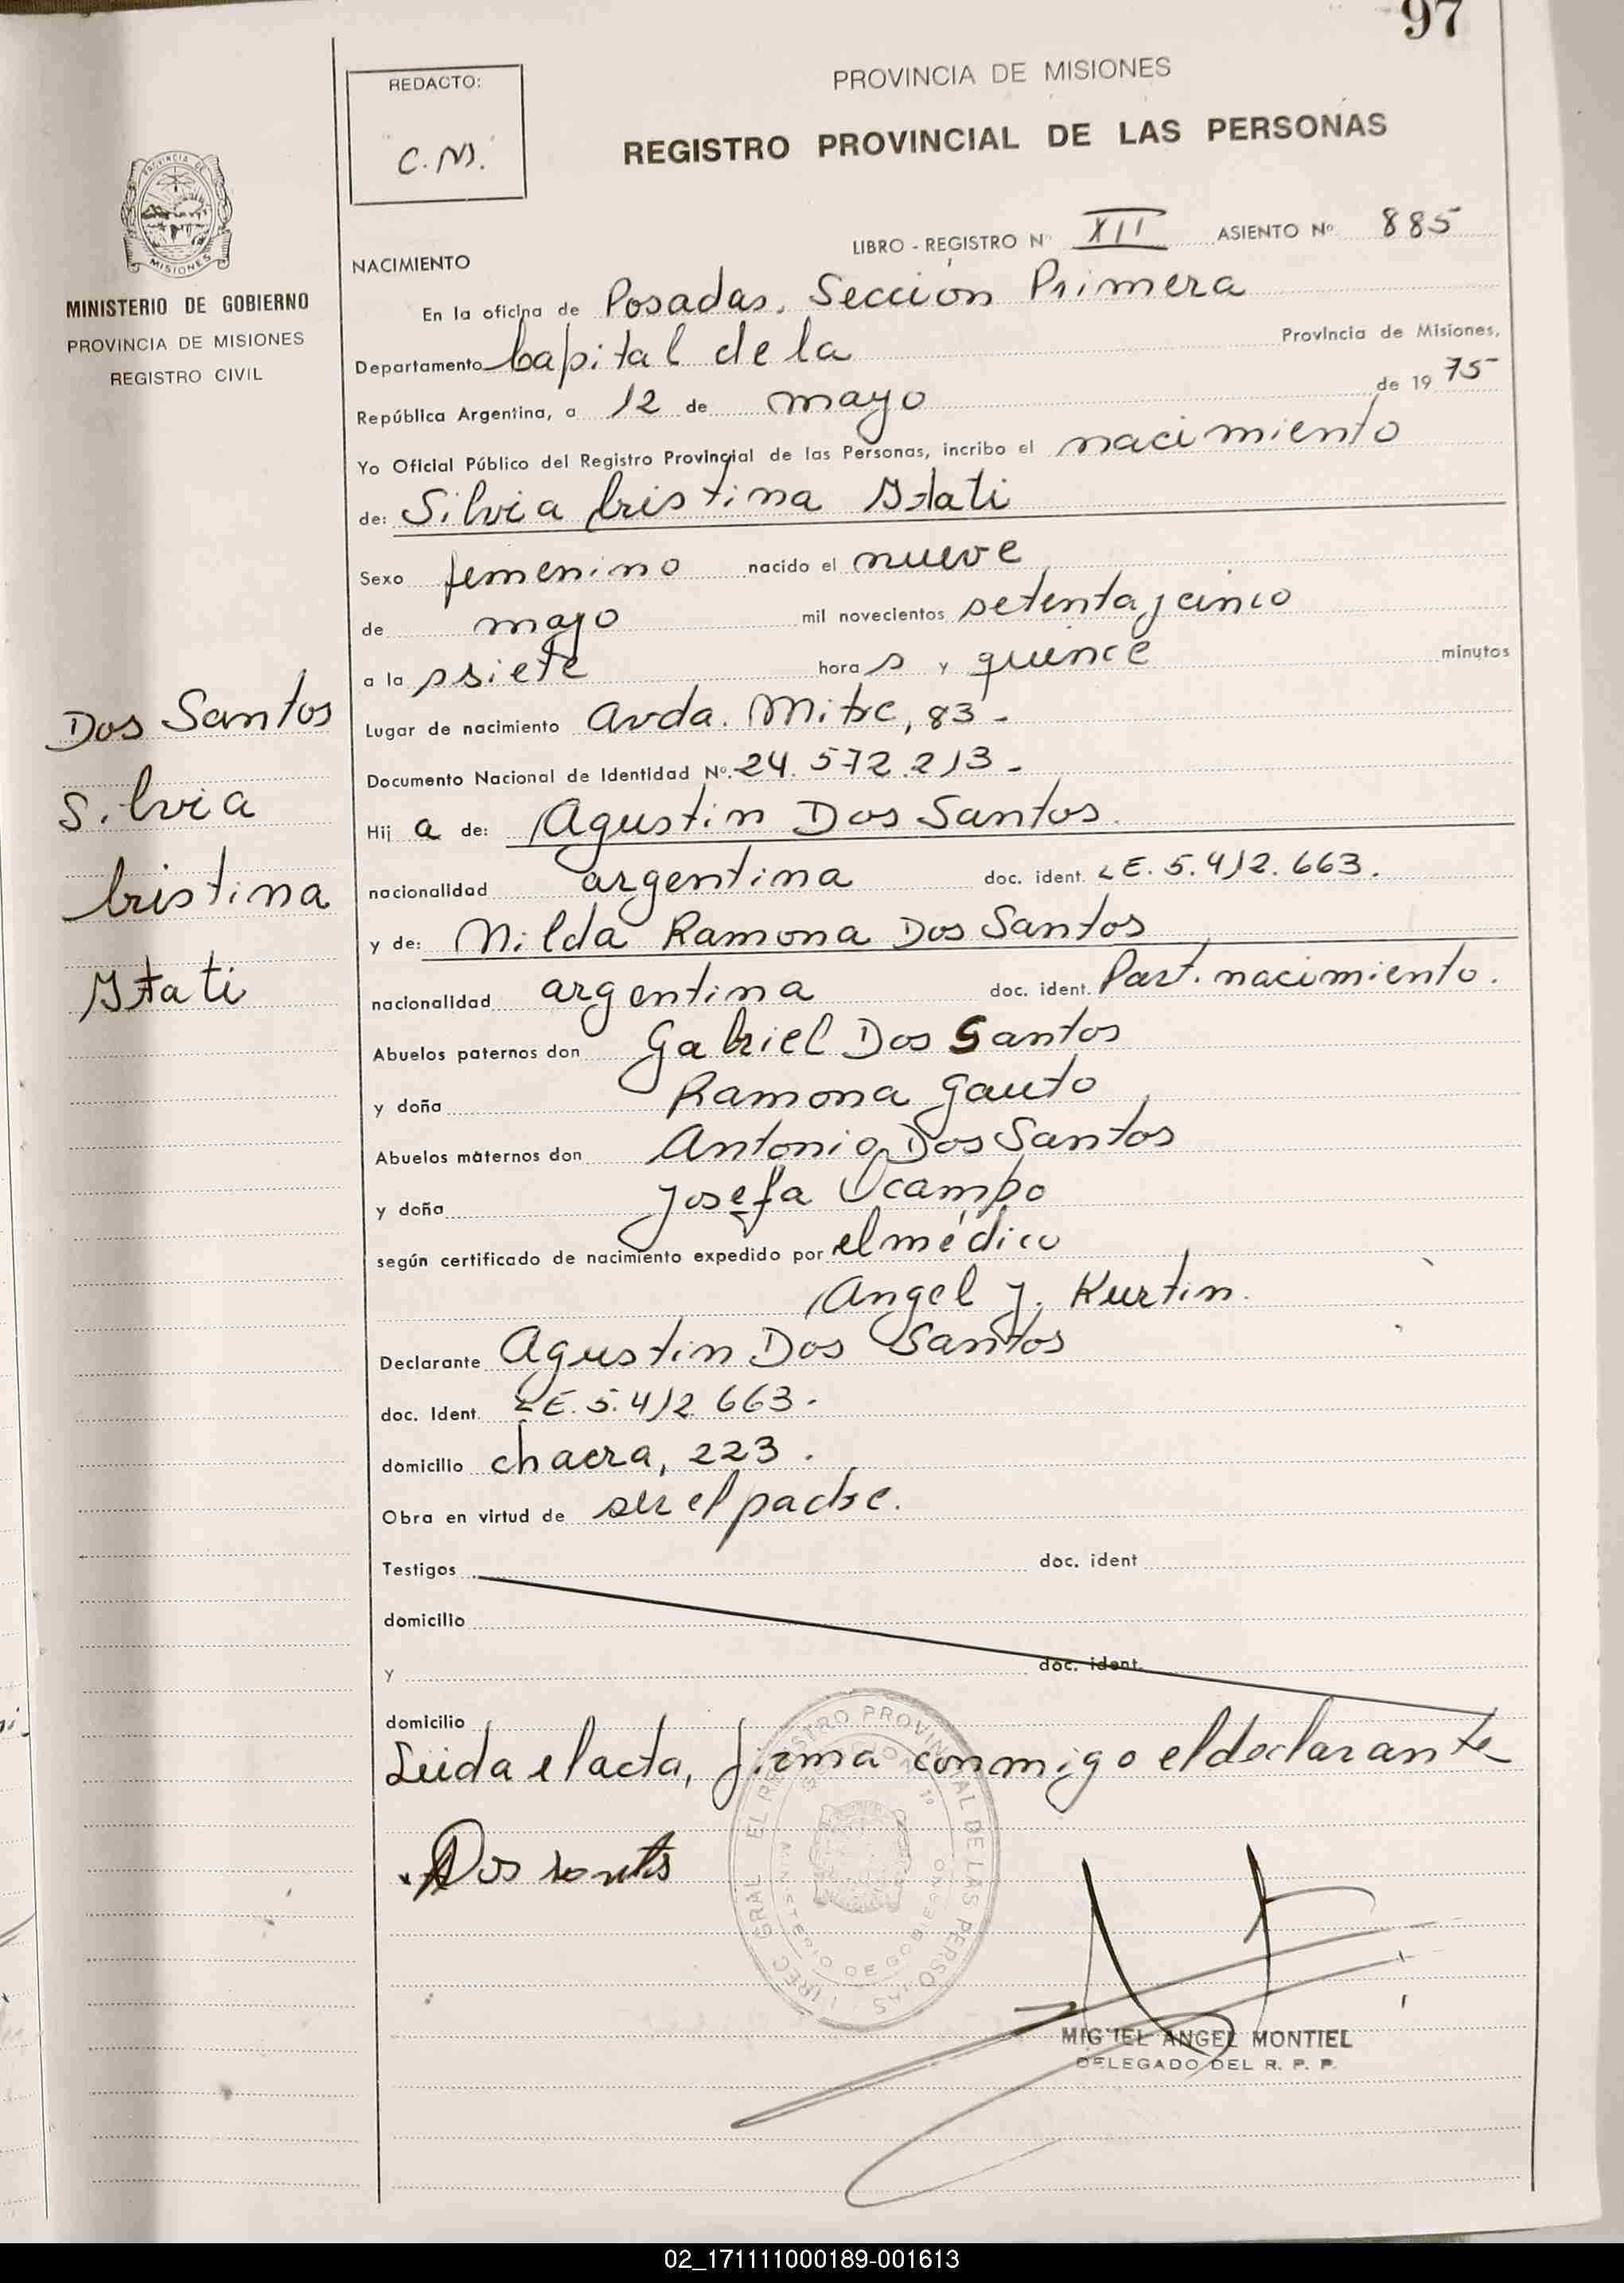 97
REDACTO:
C.M.
PROVINCIA DE MISIONES
REGISTRO PROVINCIAL DE LAS PERSONAS
PROVINCIA DE
MISIONES
MINISTERIO DE GOBIERNO
PROVINCIA DE MISIONES
REGISTRO CIVIL
LIBRO - REGISTRO Nº XII ASIENTO Nº 885
NACIMIENTO
En la oficina de Posadas, Sección Primera
Departamento Capital de la Provincia de Misiones,
República Argentina, a 12 de mayo de 1975
Yo Oficial Público del Registro Provincial de las Personas, incribo el nacimiento
de: Silvia Cristina Itati
Sexo femenino nacido el nueve
de mayo mil novecientos setenta y cinco
a la s siete hora s y quince minutos
Lugar de nacimiento Avda. Mitre, 83 -
Documento Nacional de Identidad Nº. 24.572.213 -
Hij a de: Agustin Dos Santos.
nacionalidad argentina doc. ident. LE. 5.412.663.
y de: Nilda Ramona Dos Santos
nacionalidad argentina doc. ident. Part. nacimiento.
Abuelos paternos don Gabriel Dos Santos
y doña Ramona Gauto
Abuelos maternos don Antonio Dos Santos
y doña Josefa Ocampo
según certificado de nacimiento expedido por el médico
Angel J. Kurtin.
Declarante Agustin Dos Santos
doc. Ident. LE. 5.412 663.
domicilio chacra, 223.
Obra en virtud de ser el padre.
Testigos doc. ident
domicilio
y doc. ident.
domicilio
Leida el acta, firma conmigo el declarante
Dos santos
Dos Santos
Silvia
Cristina
Itati
MIGUEL ANGEL MONTIEL
DELEGADO DEL R. P. P.
02_171111000189-001613